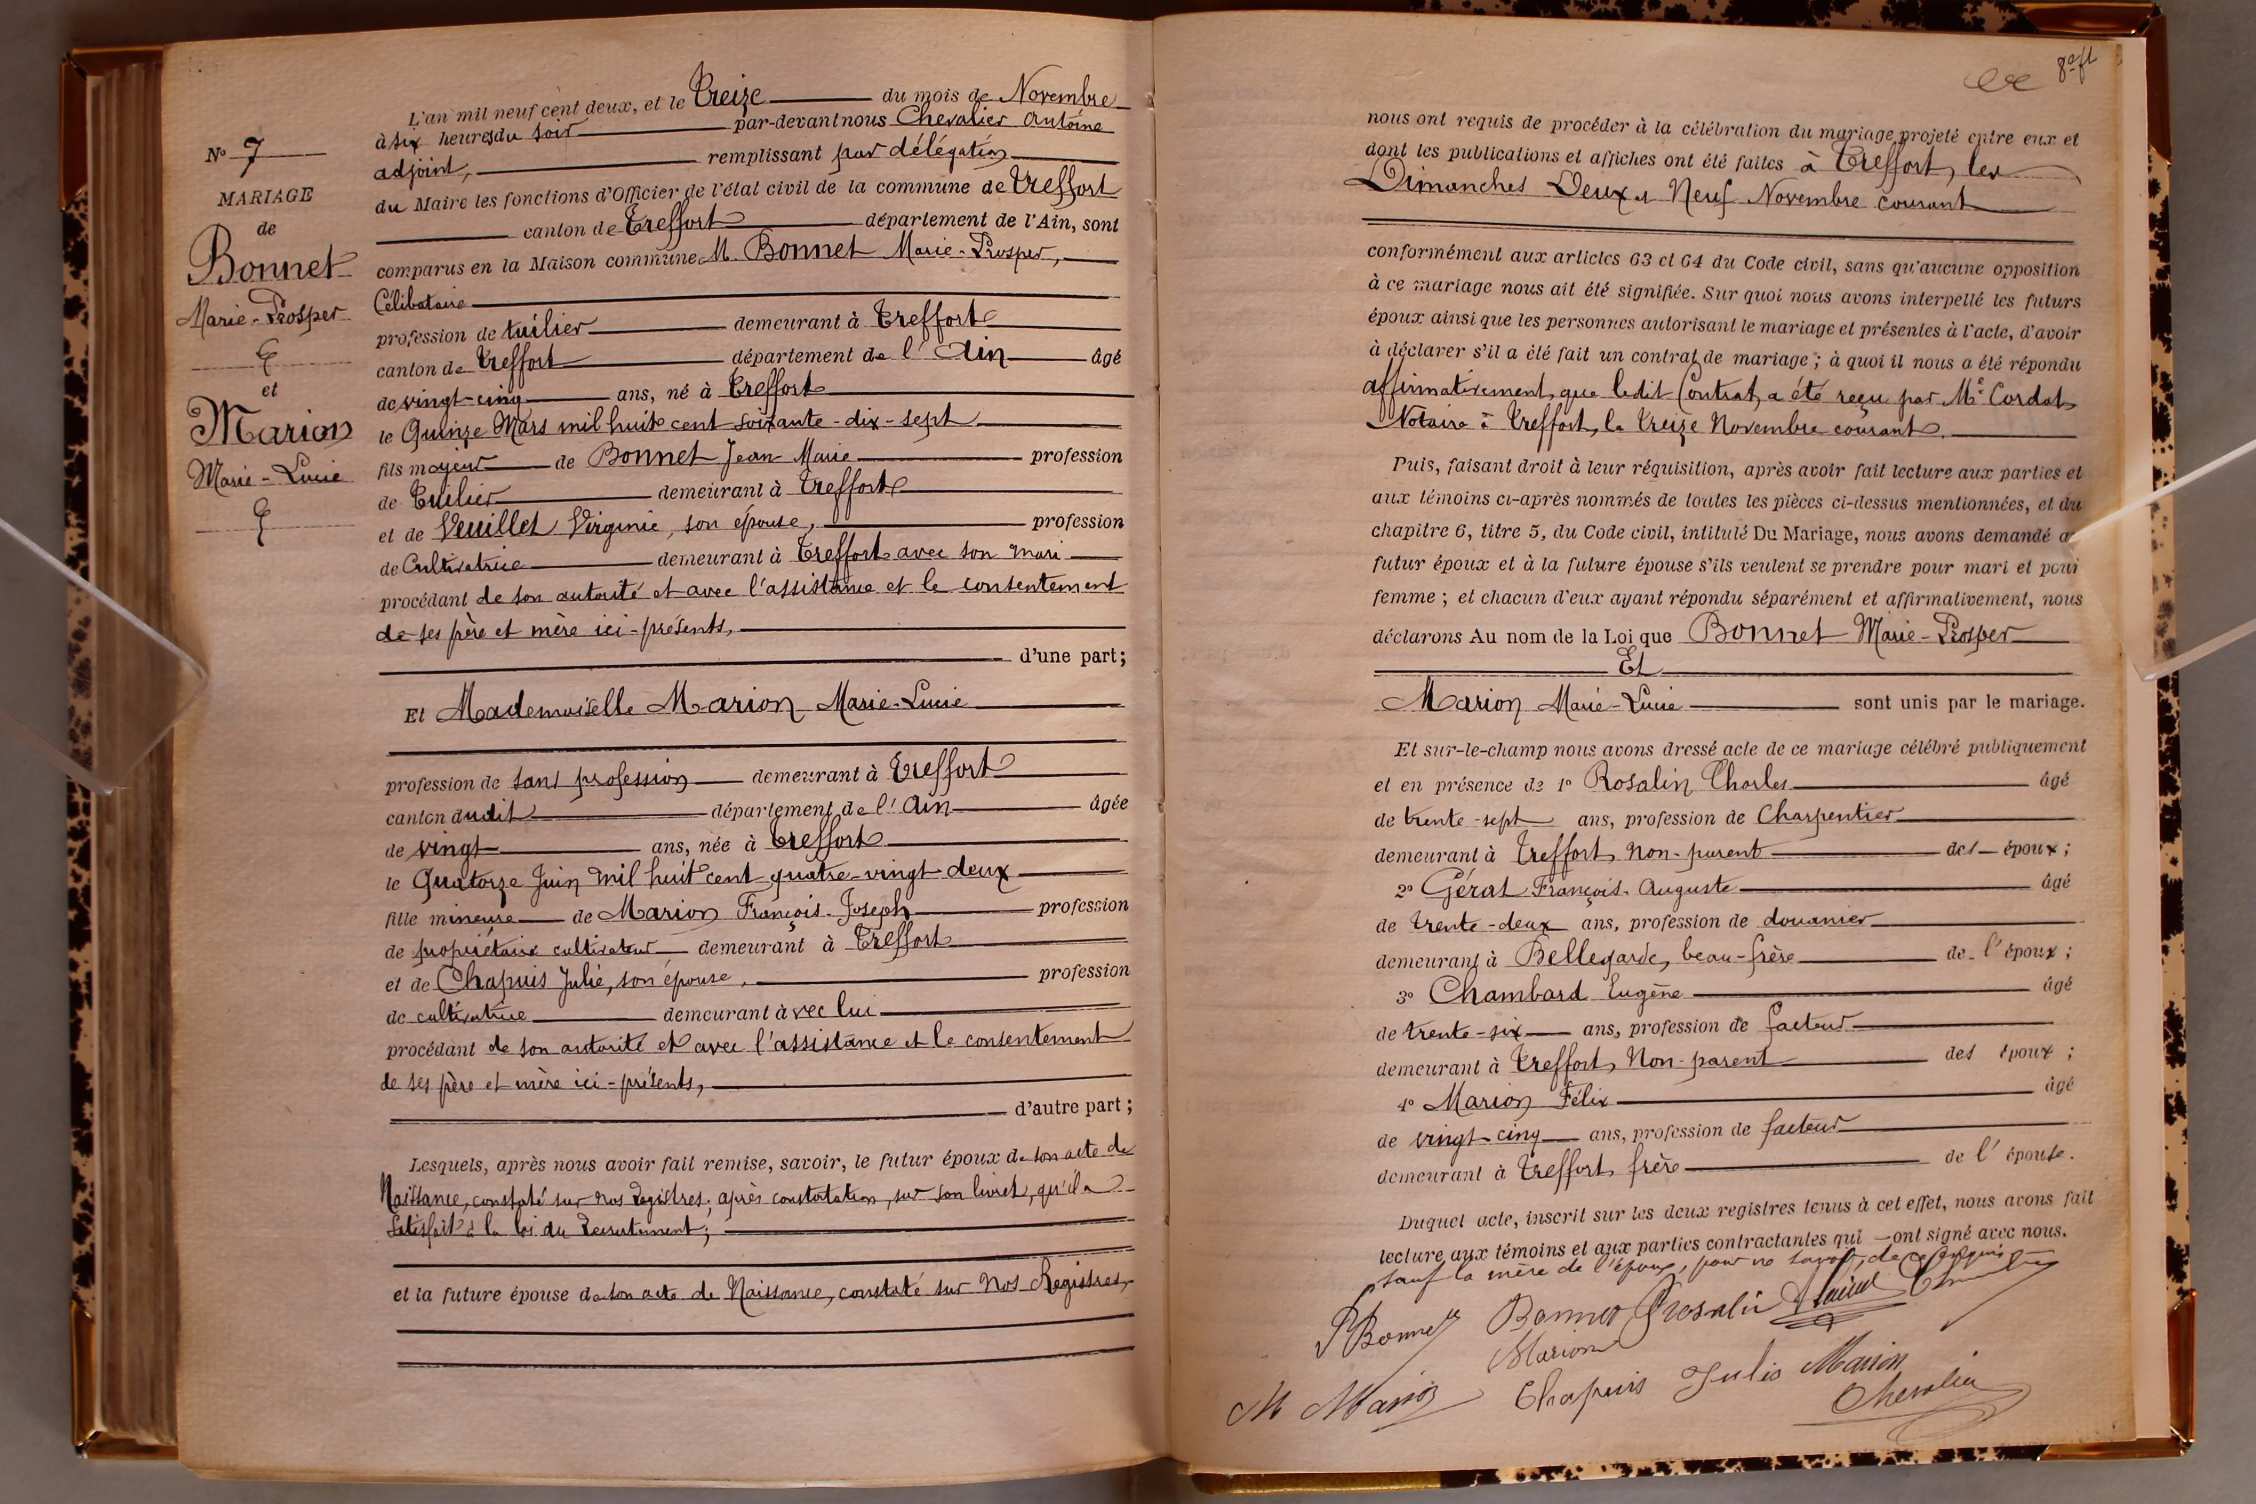 N° 7
MARIAGE
de
Bonnet
Marie-Prosper
et
Marion
Marie-Lucie
L'an mil neuf cent deux, et le Treize du mois de Novembre
à six heures du soir par-devant nous Chevalier Antoine
adjoint, remplissant par délégation
du Maire les fonctions d'Officier de l'état civil de la commune de Treffort
canton de Treffort département de l'Ain, sont
comparus en la Maison commune M. Bonnet Marie-Prosper,
Célibataire
profession de tuilier demeurant à Treffort
canton de Treffort département de l'Ain âgé
de vingt-cinq ans, né à Treffort
le Quinze Mars mil huit cent soixante-dix-sept
fils majeur de Bonnet Jean Marie profession
de Tuilier demeurant à Treffort
et de Veuillet Virginie, son épouse, profession
de Cultivatrice demeurant à Treffort avec son mari
procédant de son autorité et avec l'assistance et le consentement
de ses père et mère ici-présents,
d'une part;
Et Mademoiselle Marion Marie-Lucie
profession de sans profession demeurant à Treffort
canton dudit département de l'Ain âgée
de vingt ans, née à Treffort
le Quatorze Juin mil huit cent quatre-vingt-deux
fille mineure de Marion François-Joseph profession
de propriétaire cultivateur demeurant à Treffort
et de Chapuis Julie, son épouse, profession
de cultivatrice demeurant avec lui
procédant de son autorité et avec l'assistance et le consentement
de ses père et mère ici-présents,
d'autre part;
Lesquels, après nous avoir fait remise, savoir, le futur époux de son acte de
Naissance, constaté sur nos Registres; après constatation, sur son livret, qu'il a
satisfait à la loi du Recrutement;
et la future épouse de son acte de Naissance, constaté sur nos Registres,
nous ont requis de procéder à la célébration du mariage projeté entre eux et
dont les publications et affiches ont été faites à Treffort, les
Dimanches Deux et Neuf Novembre courant
conformément aux articles 63 et 64 du Code civil, sans qu'aucune opposition
à ce mariage nous ait été signifiée. Sur quoi nous avons interpellé les futurs
époux ainsi que les personnes autorisant le mariage et présentes à l'acte, d'avoir
à déclarer s'il a été fait un contrat de mariage; à quoi il nous a été répondu
affirmativement, que ledit Contrat, a été reçu par Me Cordat
Notaire à Treffort, le Treize Novembre courant.
Puis, faisant droit à leur réquisition, après avoir fait lecture aux parties et
aux témoins ci-après nommés de toutes les pièces ci-dessus mentionnées, et du
chapitre 6, titre 5, du Code civil, intitulé Du Mariage, nous avons demandé a
futur époux et à la future épouse s'ils veulent se prendre pour mari et pour
femme; et chacun d'eux ayant répondu séparément et affirmativement, nous
déclarons Au nom de la Loi que Bonnet Marie-Prosper
Et
Marion Marie-Lucie sont unis par le mariage.
Et sur-le-champ nous avons dressé acte de ce mariage célébré publiquement
et en présence de 1° Rosalin Charles âgé
de trente-sept ans, profession de Charpentier
demeurant à Treffort, non-parent des époux;
2° Gérat François-Auguste âgé
de trente-deux ans, profession de douanier
demeurant à Bellegarde, beau-frère de l'époux;
3° Chambard Eugène âgé
de trente-six ans, profession de facteur
demeurant à Treffort, Non-parent des époux;
4° Marion Félix âgé
de vingt-cinq ans, profession de facteur
demeurant à Treffort, frère de l'épouse.
Duquel acte, inscrit sur les deux registres tenus à cet effet, nous avons fait
lecture aux témoins et aux parties contractantes qui ont signé avec nous.
sauf la mère de l'époux, pour ne savoir, de ce requis
P Bonnet Bonnet Rosalin
Marion
M Marion Chapuis Julie Marion
Chevalier